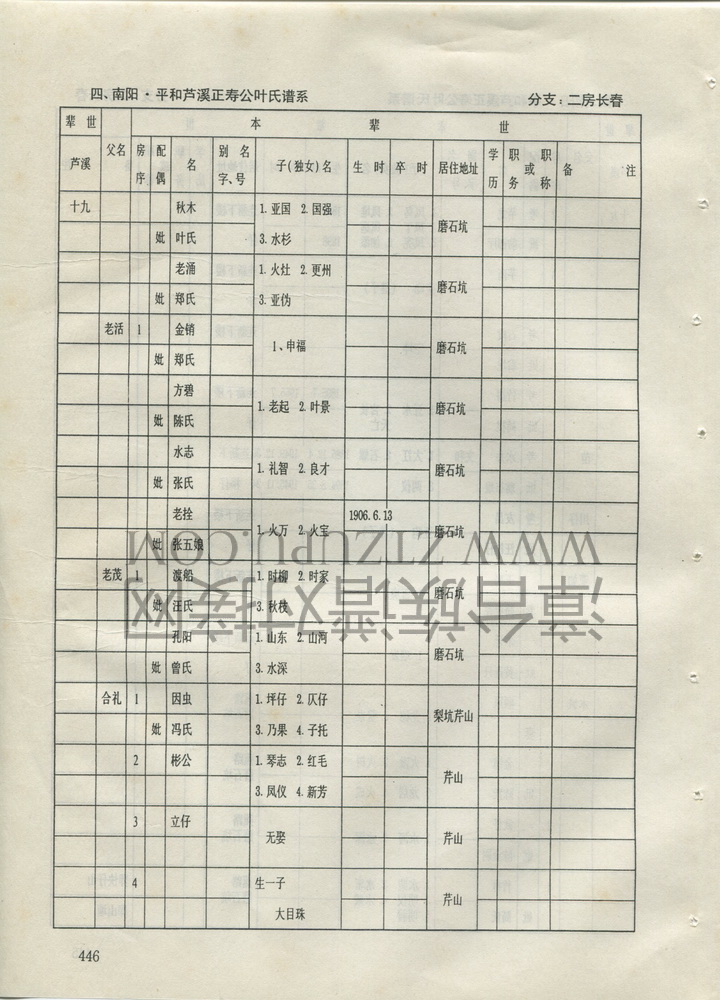 四、南阳·平和芦溪正寿公叶氏谱系 分支：二房长春
辈世 本 辈 世
芦溪 父名 房序 配偶 名 别名字、号 子(独女)名 生时 卒时 居住地址 学历 职务或职称 备注
十九 秋木 1.亚国 2.国强 磨石坑
妣 叶氏 3.水杉
老涌 1.火灶 2.更州 磨石坑
妣 郑氏 3.亚伪
老活 1 金销 1、申福 磨石坑
妣 郑氏
方碧 1.老起 2.叶景 磨石坑
妣 陈氏
水志 1.礼智 2.良才 磨石坑
妣 张氏
老拴 1.火万 2.火宝 1906.6.13 磨石坑
妣 张五娘
老茂 1 渡船 1.时柳 2.时家 磨石坑
妣 汪氏 3.秋枝
孔阳 1.山东 2.山河 磨石坑
妣 曾氏 3.水深
合礼 1 因虫 1.坪仔 2.仄仔 梨坑芹山
妣 冯氏 3.乃果 4.子托
2 彬公 1.琴志 2.红毛 芹山
3.凤仪 4.新芳
3 立仔 无娶 芹山
4 生一子 芹山
大目珠
446
漳台族谱对接网
WWW.ZTZUPU.COM